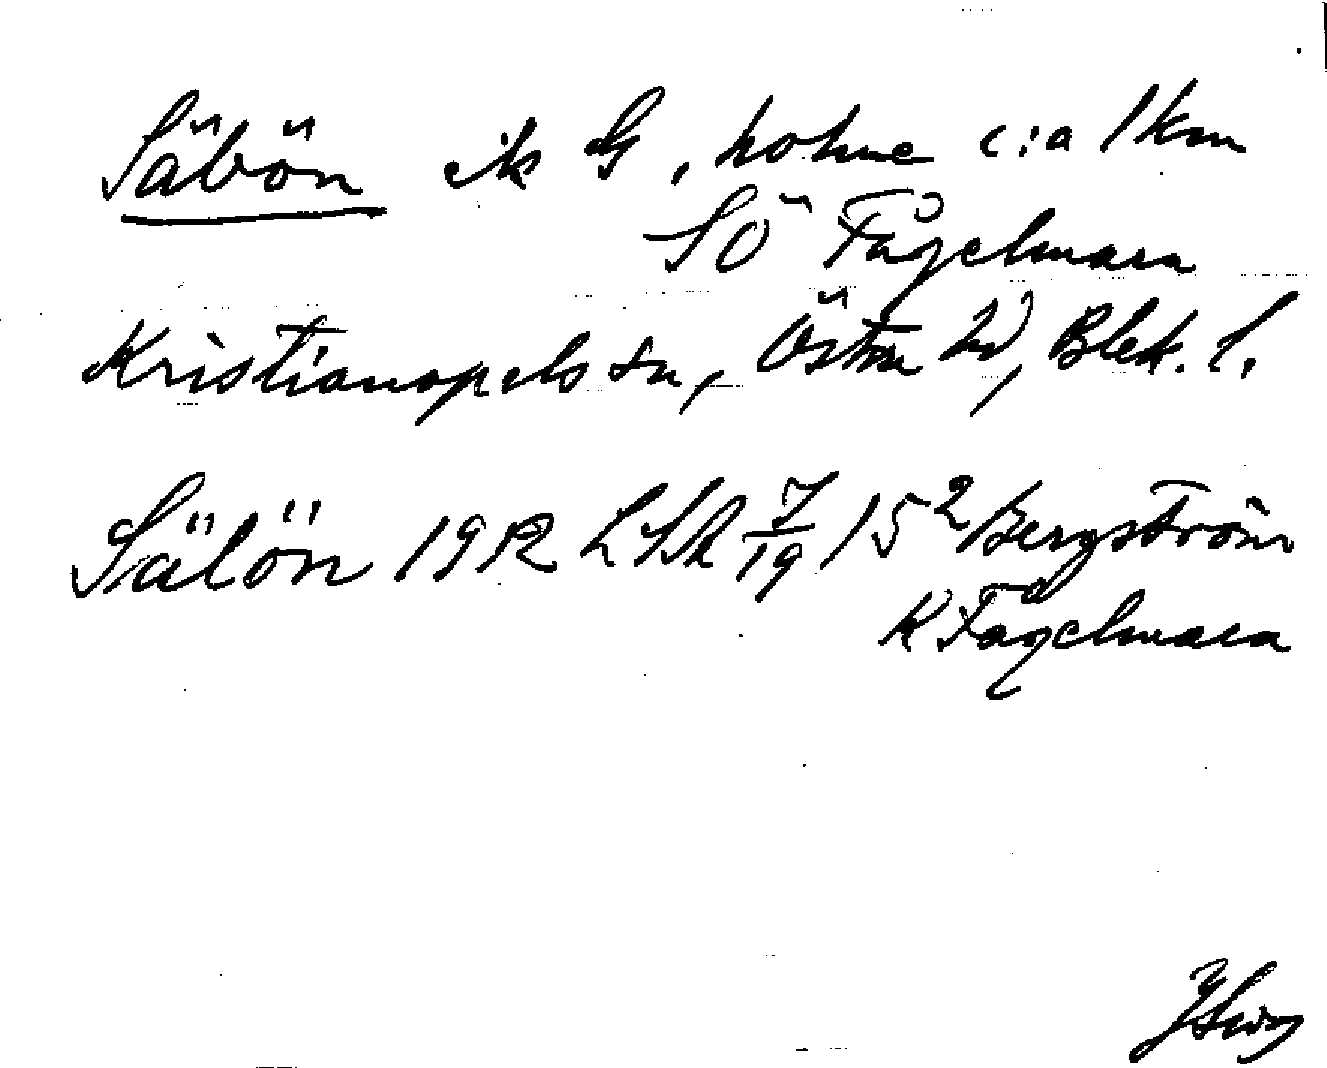 Säbön ek G, holme c:a 1 km
SÖ Fågelmara
Kristianopels sn, Östra hd, Blek. l.
Sälön 1912 LSA 7/19 15² Bergström
K Fågelmara